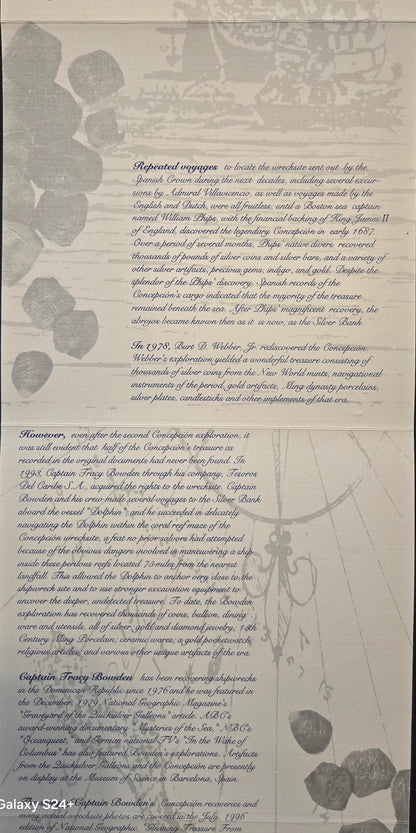 Repeated voyages to locate the wrecksite sent out by the
Spanish Crown during the next decades, including several excur-
sions by Admiral Villavicencio, as well as voyages made by the
English and Dutch, were all fruitless, until a Boston sea captain
named William Phips, with the financial backing of King James II
of England, discovered the legendary Concepción in early 1687.
Over a period of several months, Phips' native divers recovered
thousands of pounds of silver coins and silver bars, and a variety of
other silver artifacts, precious gems, indigo, and gold. Despite the
splendor of the Phips' discovery, Spanish records of the
Concepción's cargo indicated that the majority of the treasure
remained beneath the sea. After Phips' magnificent recovery, the
abrojos became known then as it is now, as the Silver Bank.
In 1978, Burt D. Webber, Jr. rediscovered the Concepción.
Webber's exploration yielded a wonderful treasure consisting of
thousands of silver coins from the New World mints, navigational
instruments of the period, gold artifacts, Ming dynasty porcelains,
silver plates, candlesticks and other implements of that era.
However, even after the second Concepción exploration, it
was still evident that half of the Concepción's treasure as
recorded in the original documents had never been found. In
1993, Captain Tracy Bowden through his company, Tesoros
Del Caribe S.A., acquired the rights to the wrecksite. Captain
Bowden and his crew made several voyages to the Silver Bank
aboard the vessel "Dolphin", and he succeeded in delicately
navigating the Dolphin within the coral reef maze of the
Concepción wrecksite, a feat no prior salvors had attempted
because of the obvious dangers involved in maneuvering a ship
inside these perilous reefs located 75 miles from the nearest
landfall. This allowed the Dolphin to anchor very close to the
shipwreck site and to use stronger excavation equipment to
uncover the deeper, undetected treasure. To date, the Bowden
exploration has recovered thousands of coins, bullion, dining
ware and utensils, all of silver, gold and diamond jewelry, 15th
Century Ming Porcelain, ceramic wares, a gold pocketwatch,
religious articles, and various other unique artifacts of the era.
Captain Tracy Bowden has been recovering shipwrecks
in the Dominican Republic since 1976 and he was featured in
the December, 1979 National Geographic Magazine's
"Graveyard of the Quicksilver Galleons" article. ABC's
award-winning documentary "Mysteries of the Sea," NBC's
"Oceanquest," and German national TV's "In the Wake of
Columbus" has also featured Bowden's explorations. Artifacts
from the Quicksilver Galleons and the Concepción are presently
on display at the Museum of Science in Barcelona, Spain.
Captain Bowden's Concepción recoveries and
many actual wrecksite photos are covered in the July, 1996
edition of National Geographic, "Gleaning Treasure From
Galaxy S24+